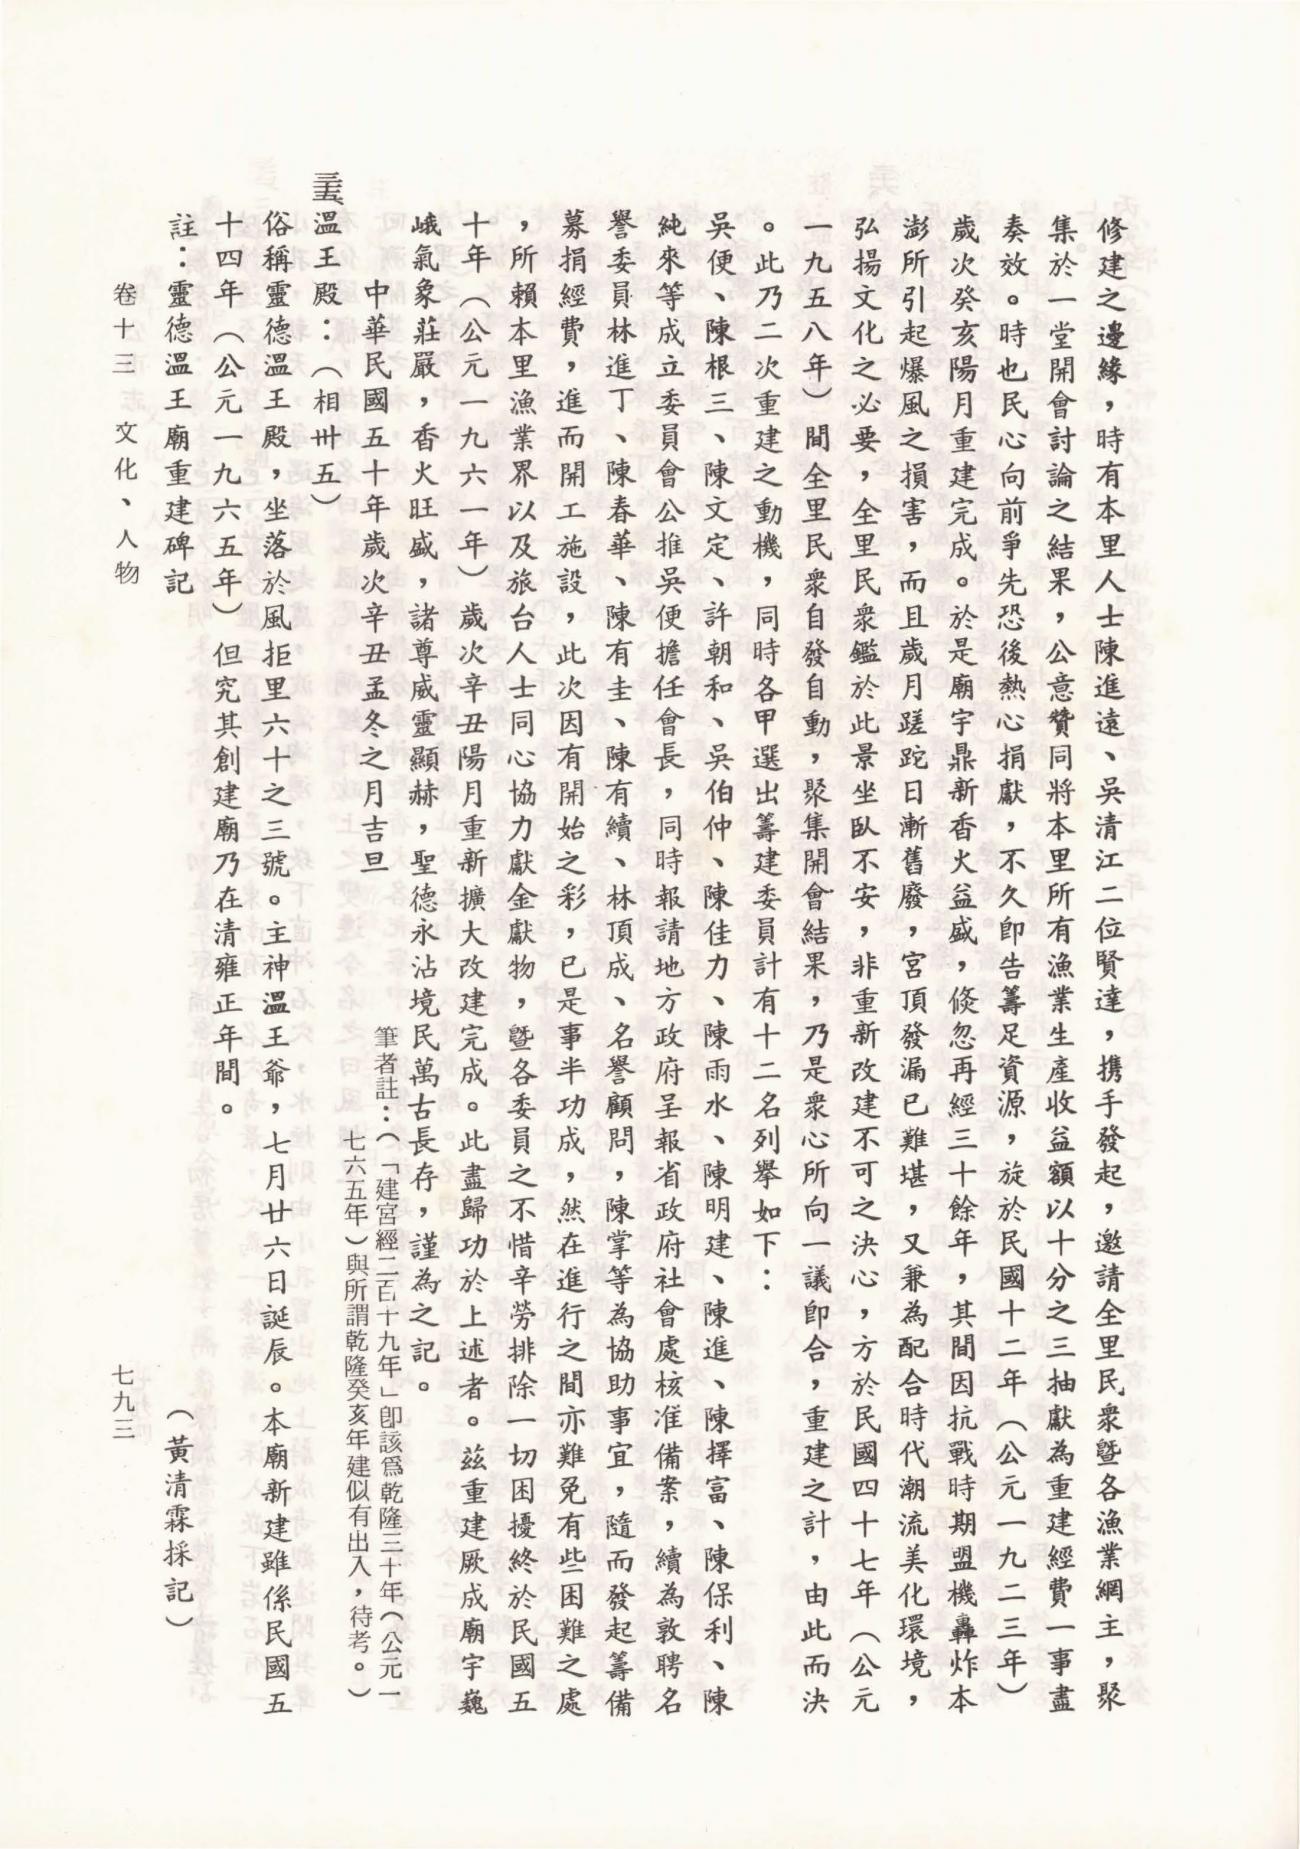 修建之邊緣，時有本里人士陳進遠、吳清江二位賢達，携手發起，邀請全里民衆暨各漁業網主，聚
集於一堂開會討論之結果，公意贊同將本里所有漁業生產收益額以十分之三抽獻為重建經費一事盡
奏效。時也民心向前爭先恐後熱心捐獻，不久卽告籌足資源，旋於民國十二年（公元一九二三年）
歲次癸亥陽月重建完成。於是廟宇鼎新香火益盛，倏忽再經三十餘年，其間因抗戰時期盟機轟炸本
澎所引起爆風之損害，而且歲月蹉跎日漸舊廢，宮頂發漏已難堪，又兼為配合時代潮流美化環境，
弘揚文化之必要，全里民衆鑑於此景坐臥不安，非重新改建不可之決心，方於民國四十七年（公元
一九五八年）間全里民衆自發自動，聚集開會結果，乃是衆心所向一議卽合，重建之計，由此而決
。此乃二次重建之動機，同時各甲選出籌建委員計有十二名列舉如下：
吳便、陳根三、陳文定、許朝和、吳伯仲、陳佳力、陳雨水、陳明建、陳進、陳擇富、陳保利、陳
純來等成立委員會公推吳便擔任會長，同時報請地方政府呈報省政府社會處核准備案，續為敦聘名
譽委員林進丁、陳春華、陳有圭、陳有續、林頂成、名譽顧問，陳掌等為協助事宜，隨而發起籌備
募捐經費，進而開工施設，此次因有開始之彩，已是事半功成，然在進行之間亦難免有些困難之處
，所賴本里漁業界以及旅台人士同心協力獻金獻物，暨各委員之不惜辛勞排除一切困擾終於民國五
十年（公元一九六一年）歲次辛丑陽月重新擴大改建完成。此盡歸功於上述者。茲重建厥成廟宇巍
峨氣象莊嚴，香火旺盛，諸尊威靈顯赫，聖德永沾境民萬古長存，謹為之記。
中華民國五十年歲次辛丑孟冬之月吉旦
筆者註：（「建宮經二百十九年」卽該爲乾隆三十年（公元一
七六五年）與所謂乾隆癸亥年建似有出入，待考。）
溫王殿：（相卅五）
俗稱靈德溫王殿，坐落於風拒里六十之三號。主神溫王爺，七月廿六日誕辰。本廟新建雖係民國五
十四年（公元一九六五年）但究其創建廟乃在清雍正年間。
註：靈德溫王廟重建碑記
（黃清霖採記）
卷十三 文化、人物
七九三